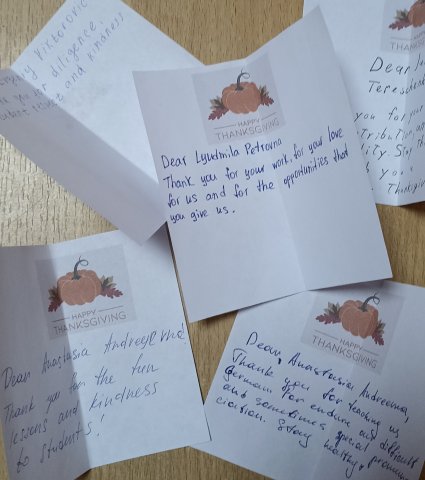 diligence,
and kindness
HAPPY
THANKSGIVING
Dear Lyudmila Petrovna
Thank you for your work, for your love
for us and for the opportunities that
you give us.
HAPPY
THANKSGIVING
Dear
you for your
Stay
you
HAPPY
THANKSGIVING
Dear Anastasia Andreevna
Thank you for the fun
lessons and kindness
to students!
HAPPY
THANKSGIVING
Dear, Anastasia Andreevna,
Thank you for teaching us
german for endure our difficult
and sometimes special pronun
Stay healthy